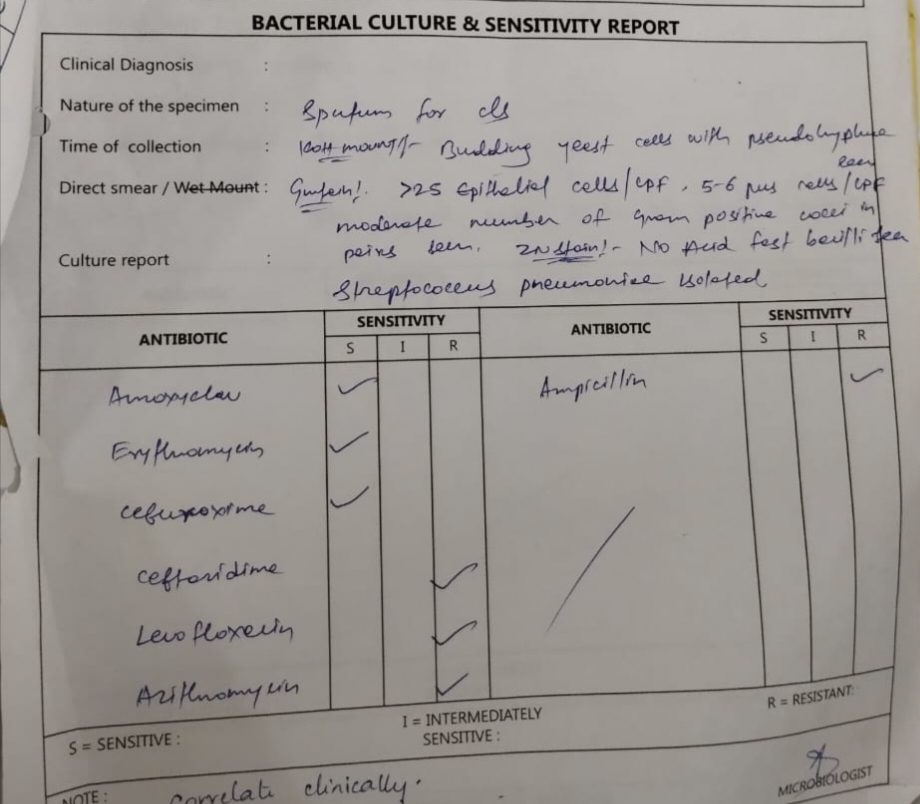 BACTERIAL CULTURE & SENSITIVITY REPORT
Clinical Diagnosis :
Nature of the specimen : Sputum for c/s
Time of collection : KOH mount/- Budding yeast cells with pseudohyphae seen
Direct smear / Wet Mount : >25 Epithelial cells/LPF, 5-6 pus cells/LPF
moderate number of gram positive cocci in
pairs seen. ZN stain!- No Acid fast bacilli seen
Culture report : Streptococcus pneumoniae isolated
ANTIBIOTIC SENSITIVITY ANTIBIOTIC SENSITIVITY
S I R S I R
Amoxyclav ✓ Ampicillin ✓
Erythromycin ✓
✓
Ceftazidime ✓
Levofloxacin ✓
Azithromycin ✓
S = SENSITIVE : I = INTERMEDIATELY SENSITIVE : R = RESISTANT:
NOTE : correlate clinically.
MICROBIOLOGIST